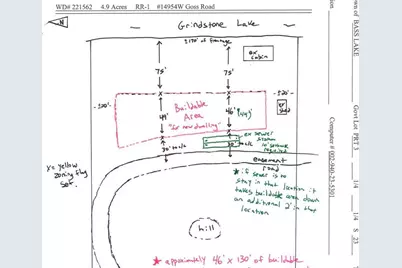 WD# 221562 4.9 Acres RR-1 #14954W Goss Road
Grindstone Lake
N
≈150' of frontage
ex cabin
75'
75'
~520'
~520'
Buildable Area
"for new dwelling"
49'
46'
(49)
ex shed
ex sewer
system
30' to c/c
30' to c/c
easement
road
x = yellow
zoning flag
set.
* if sewer is to
stay in that location it
takes buildable area down
an additional 2' in that
location
hill
* approximately 46' x 130' of buildable
Town of BASS LAKE
Govt Lot PRT 3
1/4
1/4 S 23
Computer # 002-940-23-5301